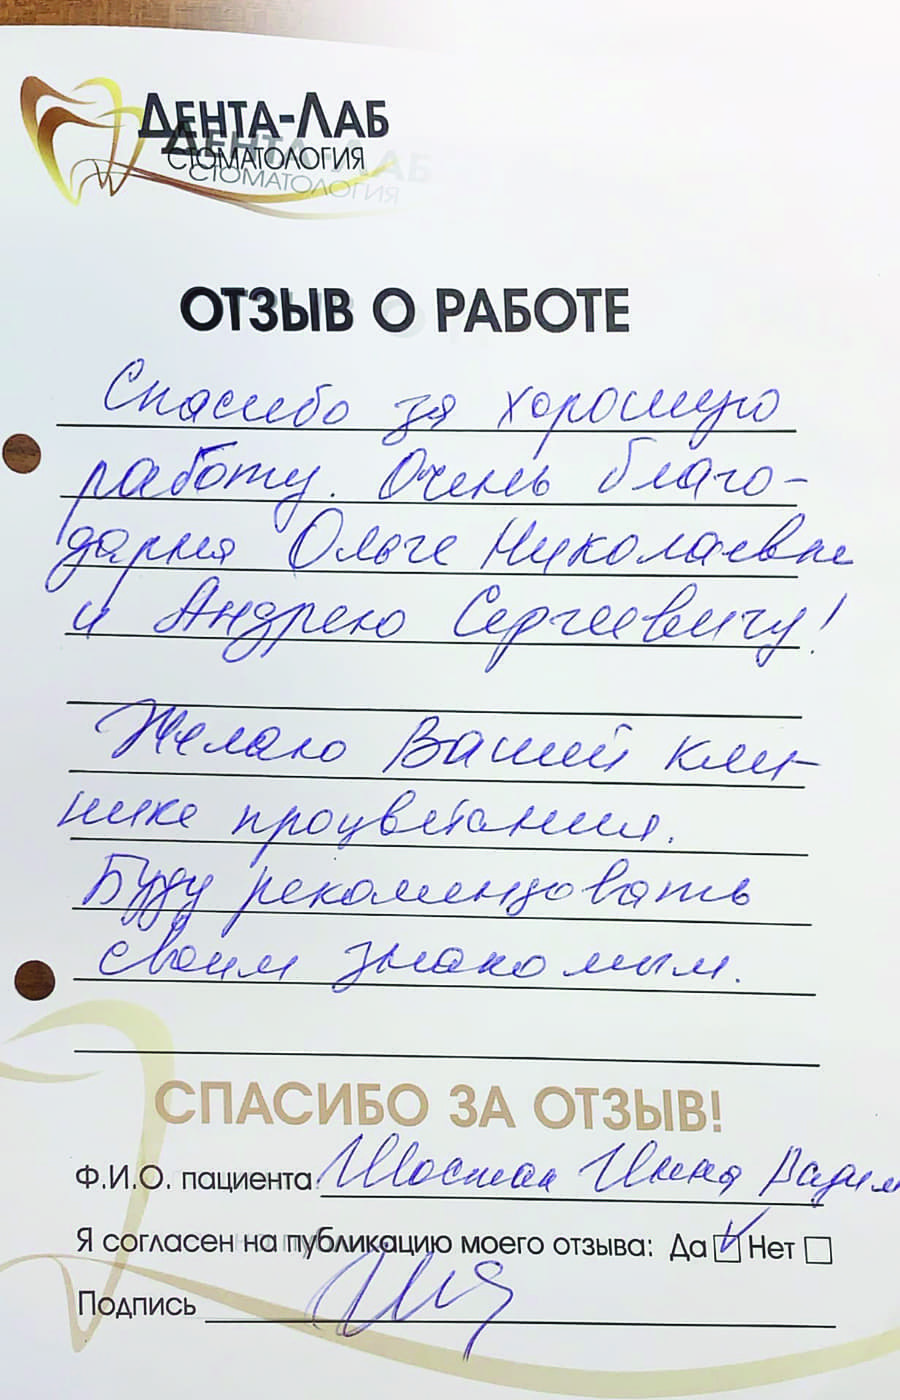 ДЕНТА-ЛАБ
СТОМАТОЛОГИЯ
ОТЗЫВ О РАБОТЕ
Спасибо за хорошую
работу. Очень благо-
дарна Ольге Николаевне
и Андрею Сергеевичу!
Желаю Вашей кли-
нике процветания.
Буду рекомендовать
своим знакомым.
СПАСИБО ЗА ОТЗЫВ!
Ф.И.О. пациента Шостак Инна Вадим
Я согласен на публикацию моего отзыва: Да Нет
Подпись